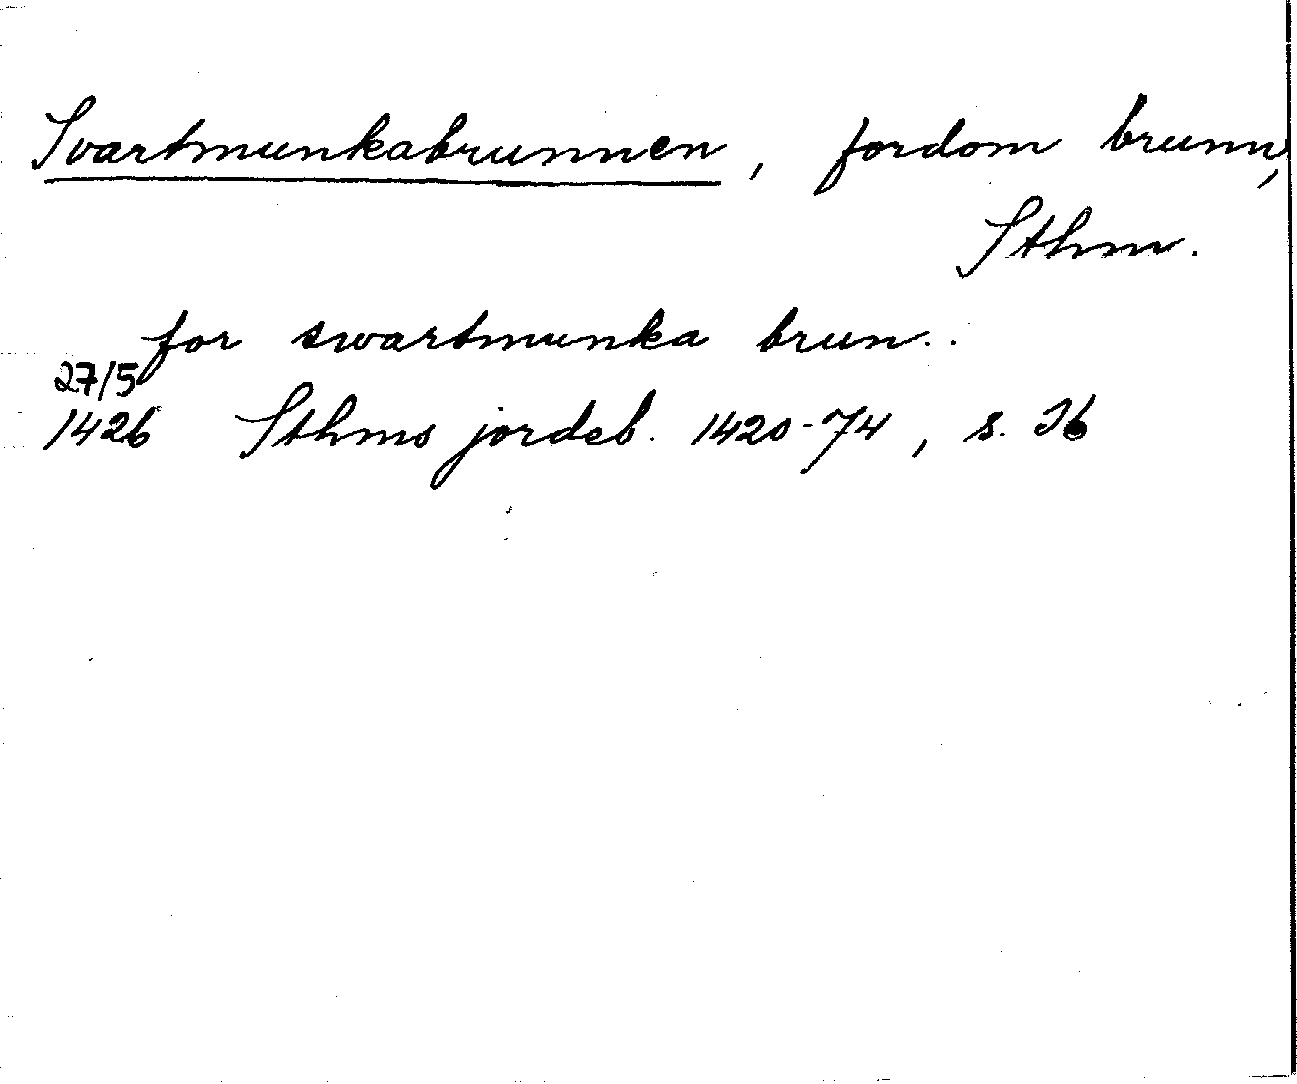 Svartmunkabrunnen, fordom brunn,
Sthm.
for swartmunka brun..
27/5
1426 Sthms jordeb. 1420-74, s. 36